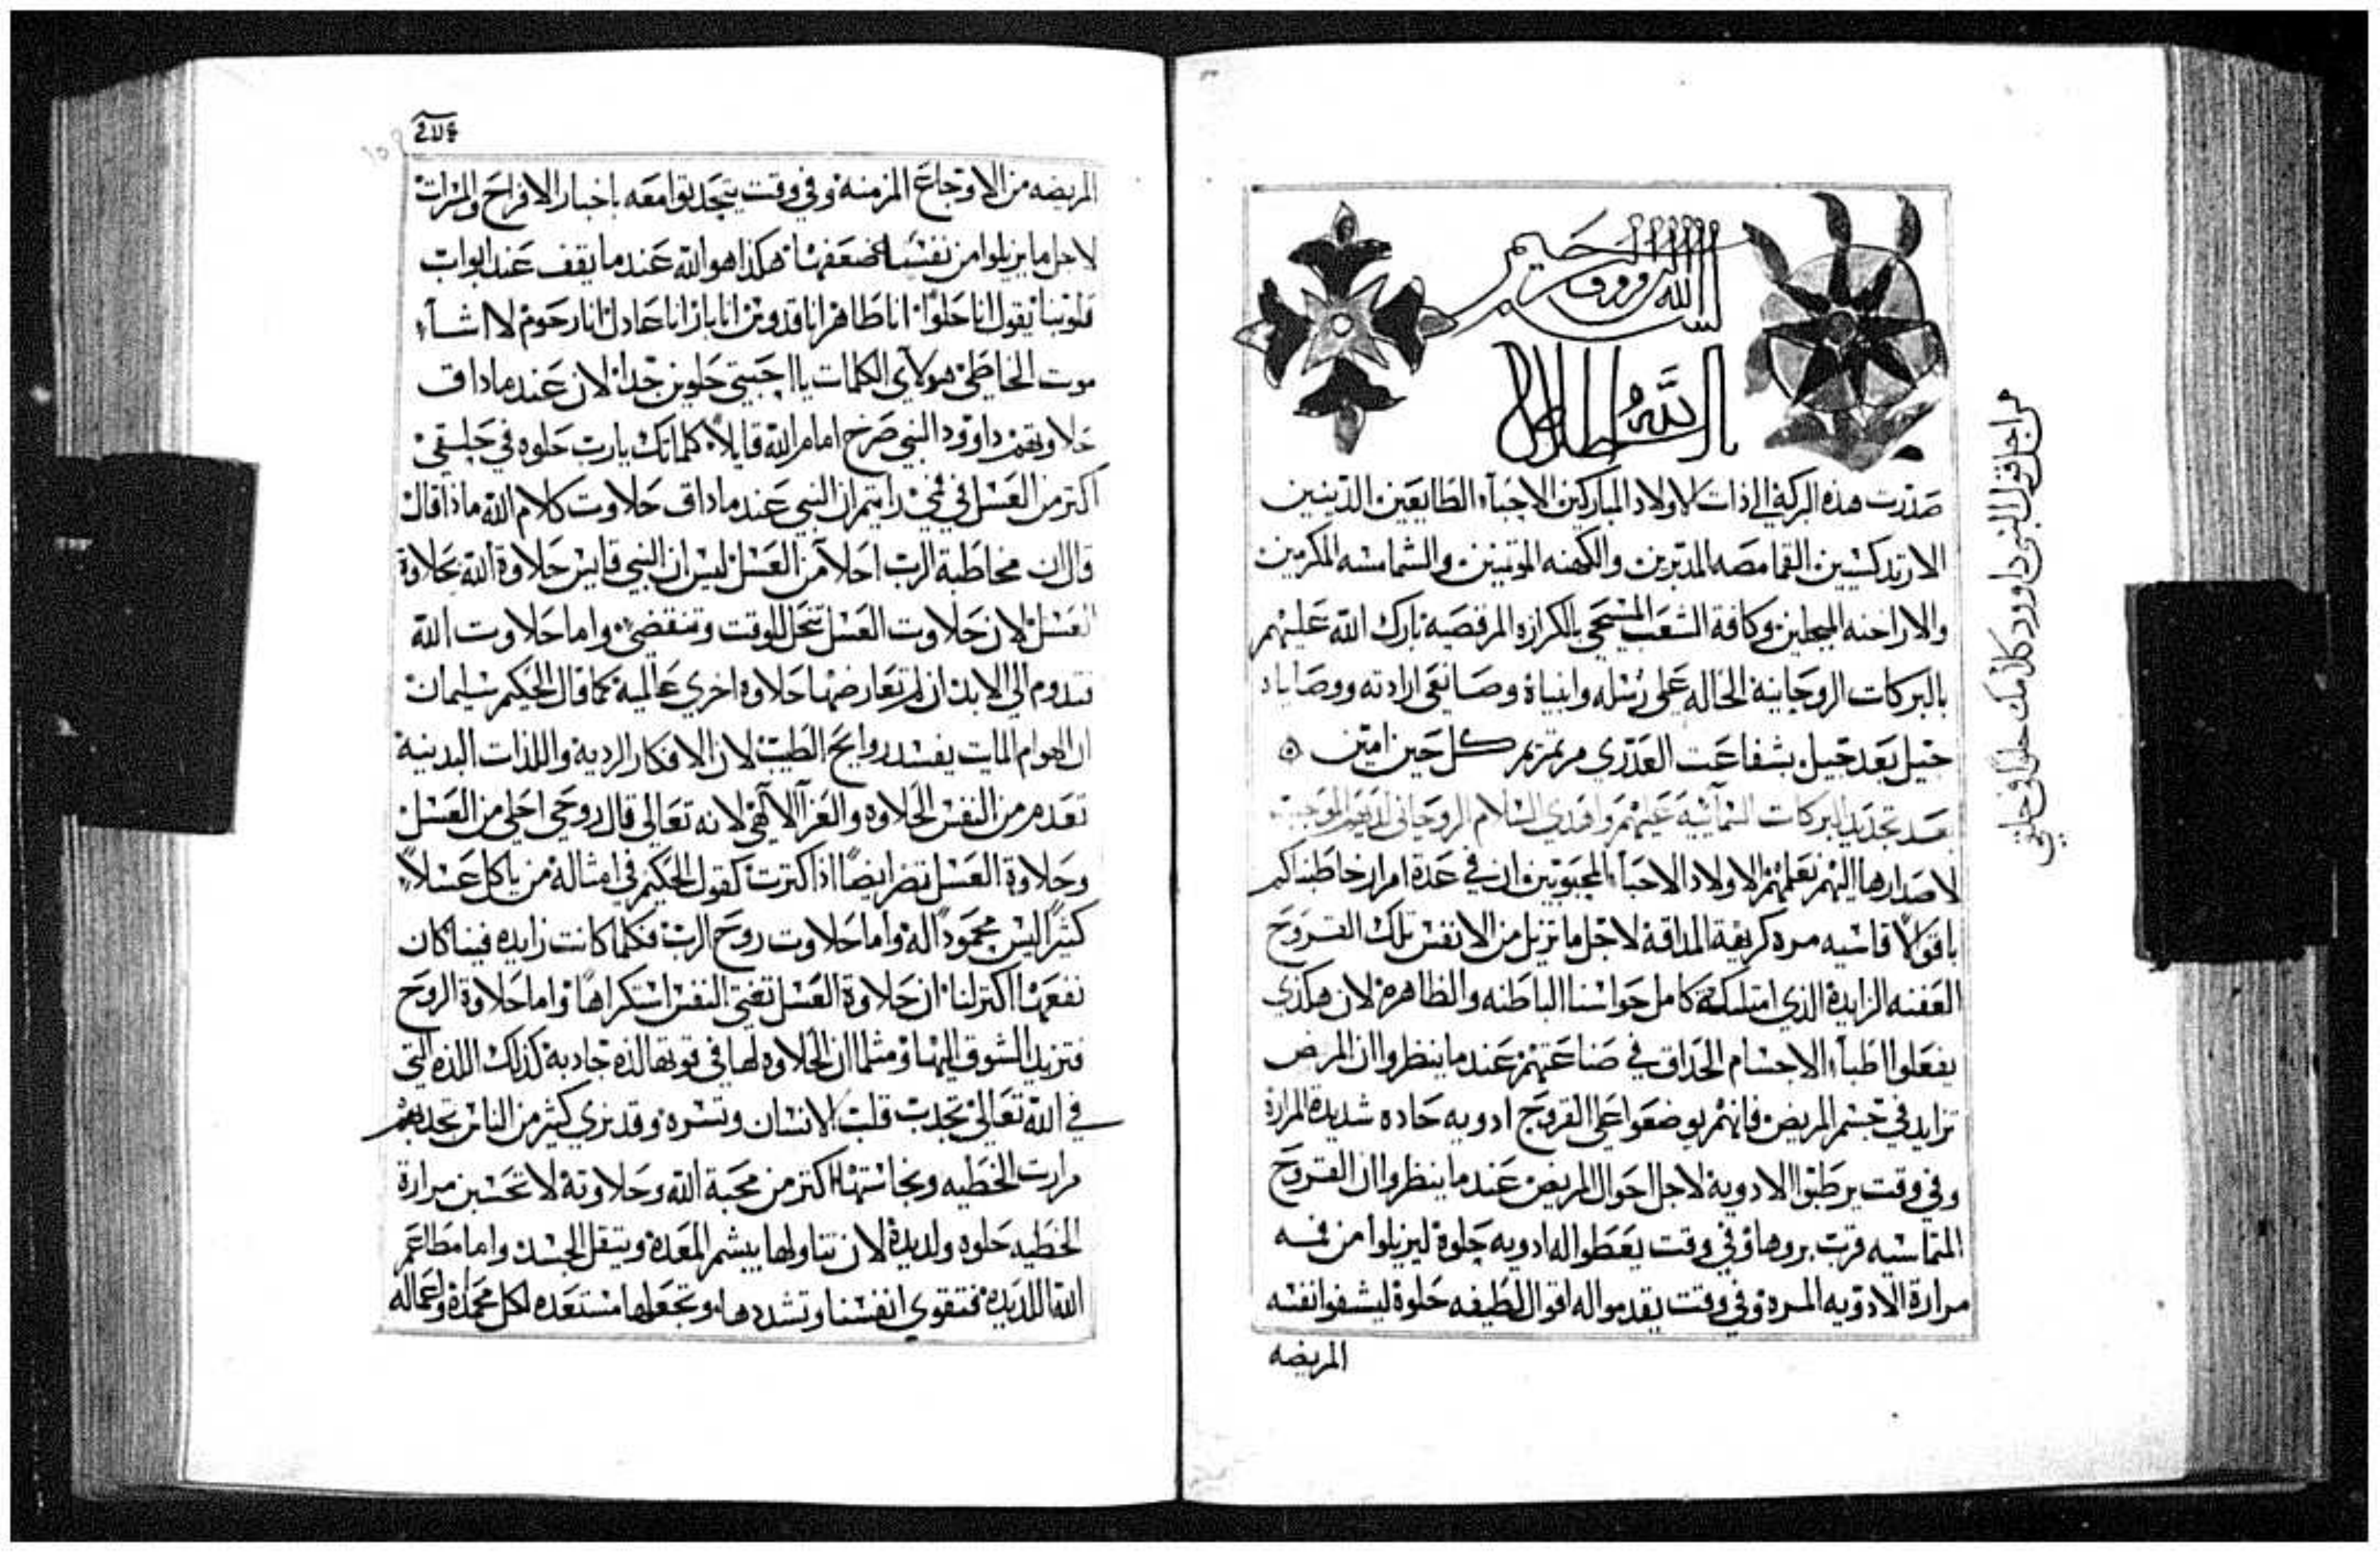 بسم الله الرووف الرحيم
صدرت هذه البركه الي ذات الاولاد المباركين الاحباء الطايعين الدينين
الارتدكسيين القمامصه المدبرين والكهنه الموتمنين والشمامسه المكرمين
والاراخنه المبجلين وكافة الشعب المسيحي بالكرازه المرقصيه بارك الله عليهم
بالبركات الروحانيه الحاله علي رسله وانبياة وصانعي ارادته ووصاياه
جيل بعد جيل بشفاعت العدري مرتمريم كل حين امين
بعد تجديد البركات السمائيه عليهم وافدي السلام الروحاني لديهم الموجب
لاصدارها اليهم نعلمهم الاولاد الاحباء المحبوبين ان في عدة امرار خاطبناكم
باقوالاً قاسيه مره كريهة المداقه لاجل ما تزيل من الانفس تلك القروح
العفنه الزايدة الذي امتلكة كامل حواسنا الباطنه والظاهرة لان هكذي
يفعلوا اطباء الاجسام الحداق في صناعتهم عندما ينظروا ان المرض
تزايد في جسم المريض فانهم يوضعوا علي القروح ادويه حاده شديدة المرارة
وفي وقت يرطبوا الادوية لاجل احوال المريض عندما ينظروا ان القروح
المتماسيه قربت بروها وفي وقت يعطوا له ادويه حلوة ليزيلوا من فمه
مرارة الادويه المره وفي وقت يقدموا له اقوال لطيفه حلوة ليشفوا نفسه
المريضه
من اجل قول النبي داوود كلامك حلو في حلقي
المريضه من الاوجاع المزمنة وفي وقت يتجدبوا معه باخبار الافراح والمسرات
لاجل ما يزيلوا من نفسنا ضعفها هكذا هو الله عندما يقف عند ابواب
قلوبنا يقول انا حلوا انا طاهر انا قدوس انا بار انا عادل انا رحوم لا اشاء
موت الخاطي هولاي الكلمات يا احبتي حلوين جدا لان عندما داق
حلاوتهم داوود النبي صرخ امام الله قايلاً كلماتك يارب حلوه في حلقي
اكتر من العسل في فمي رايتم ان النبي عندما داق حلاوت كلام الله ماذا قال
قال ان مخاطبة الرب احلا من العسل ليس ان النبي قايس حلاوة الله بحلاوة
العسل لان حلاوت العسل تنحل للوقت وتنقضي واما حلاوت الله
تدوم الي الابد ان لم تعارضها حلاوه اخري عالمية كما قال الحكيم سليمان
ان الهوام المايت يفسد روايح الطيب لان الافكار الرديه واللذات البدنية
تعدم من النفس الحلاوه والعزا الالاهي لانه تعالي قال روحي احلي من العسل
وحلاوة العسل تضر ايضاً اذا كترت كقول الحكيم في امثاله من ياكل عسلاً
كثيراً ليس محموداً له واما حلاوت روح الرب فكلما كانت زايده فينا كان
نفعها اكتر لنا ان حلاوة العسل تفني النفس استكراهاً واما حلاوة الروح
فتزيد الشوق اليها ومثلما ان الحلاوه لها في قوتها لذه جادبة كذلك اللذه التي
في الله تعالي تجدب قلب الانسان وتسره وقد نري كثير من الناس تجدبهم
مرارت الخطيه ونجاستها اكتر من محبة الله وحلاوتة لا تحسبن مرارة
الخطيه حلوه ولديدة لان تناولها يبشم المعدة ويتقل الجسد واما مطاعم
الله اللديده فتقوي انفسنا وتشددها وتجعلها مستعده لكل محمدة واعماله